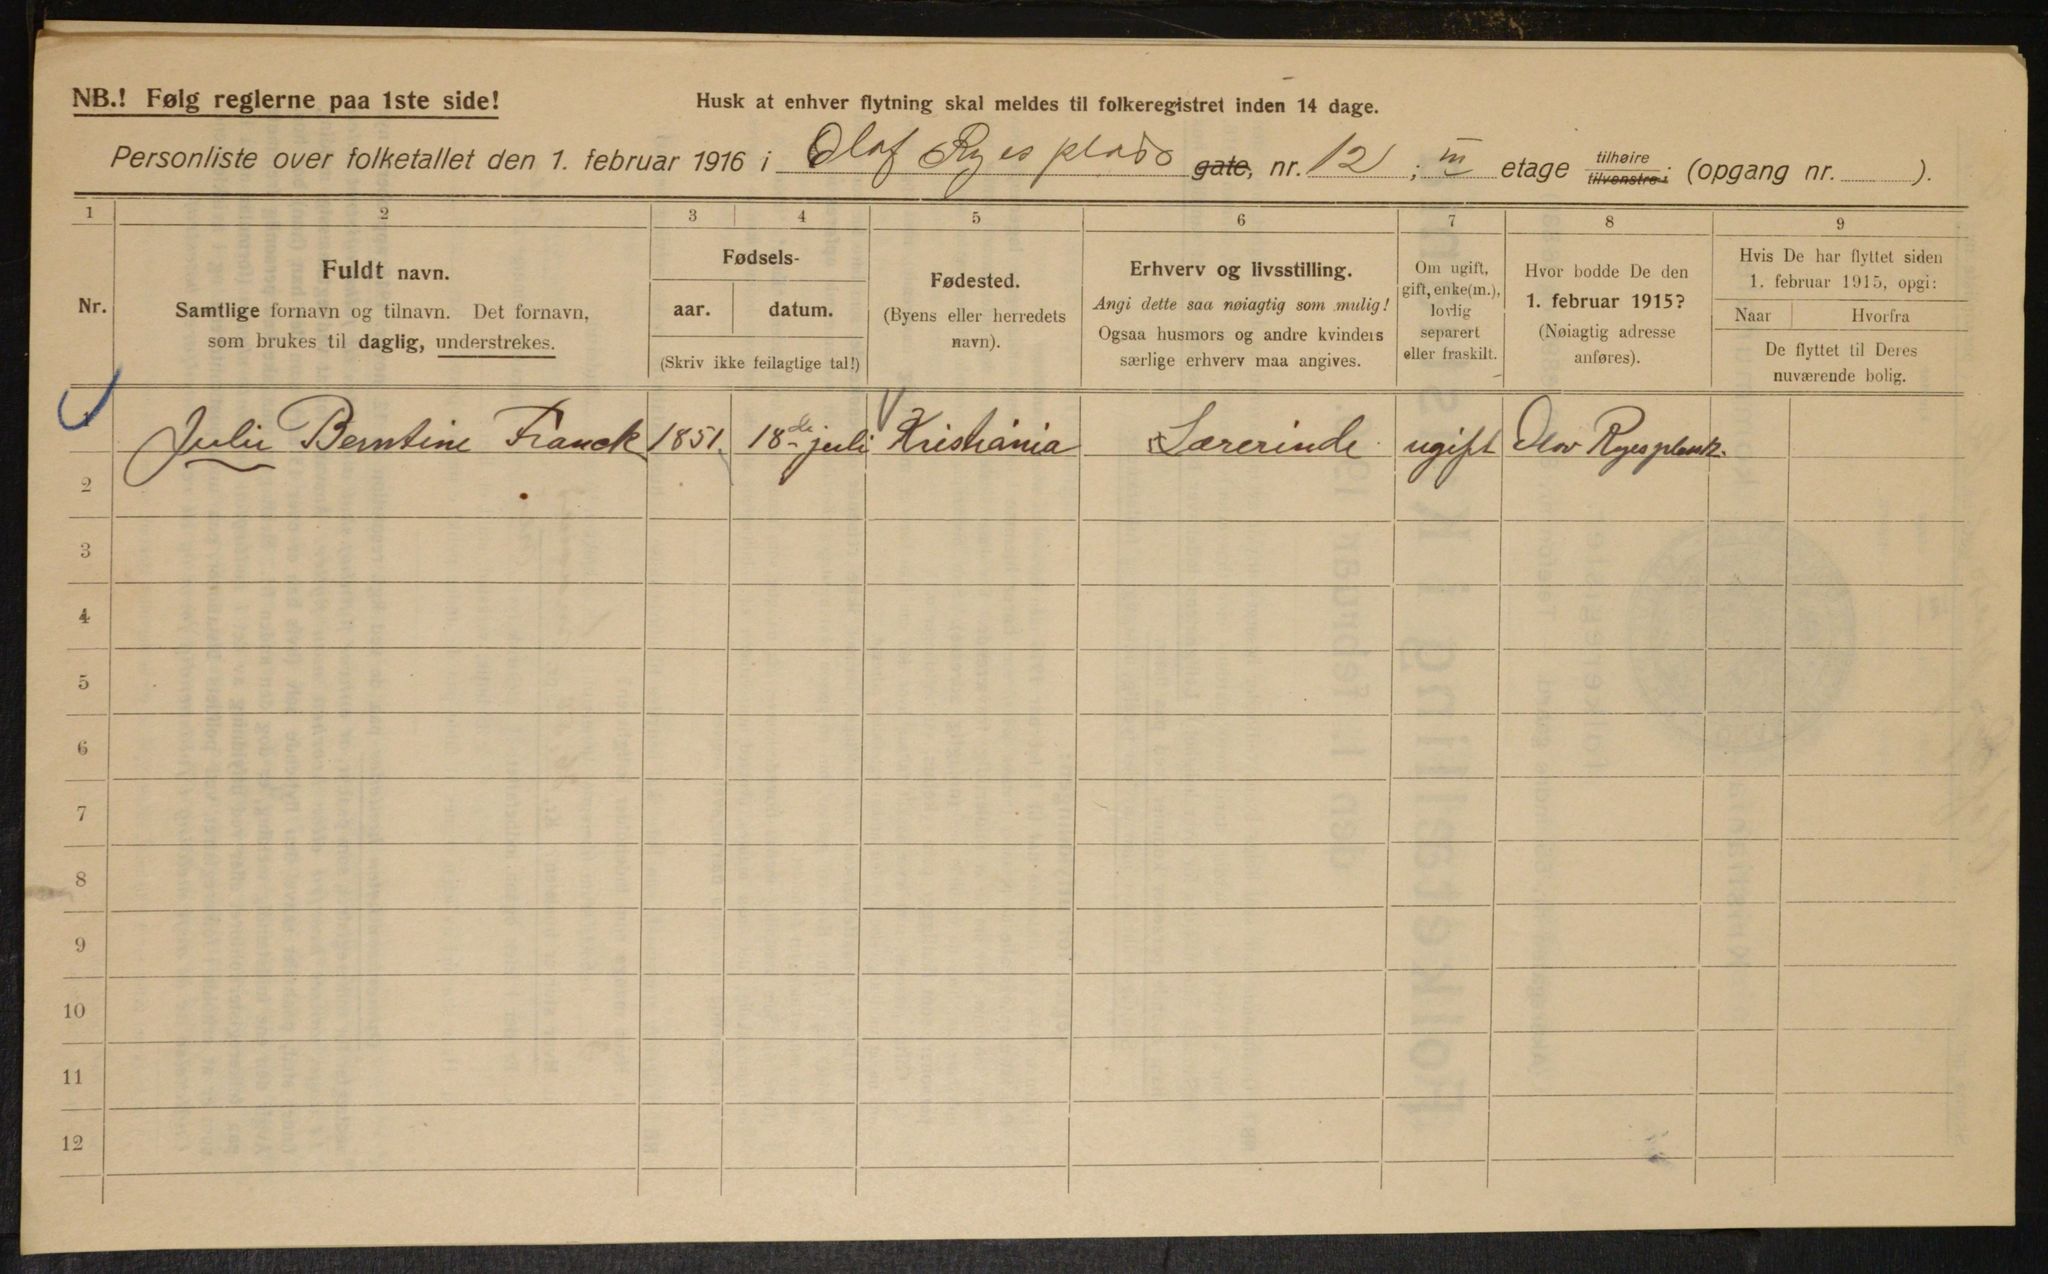 NB.! Følg reglerne paa 1ste side!
Husk at enhver flytning skal meldes til folkeregistret inden 14 dage.
Personliste over folketallet den 1. februar 1916 i Olaf Ryes plads gate, nr. 12 ; III etage tilhøire tilvenstre ; (opgang nr. ).
1 2 3 4 5 6 7 8 9
Nr.
Fuldt navn.
Samtlige fornavn og tilnavn. Det fornavn,
som brukes til daglig, understrekes.
Fødsels-
aar. datum.
(Skriv ikke feilagtige tal!)
Fødested.
(Byens eller herredets
navn).
Erhverv og livsstilling.
Angi dette saa nøiagtig som mulig!
Ogsaa husmors og andre kvinders
særlige erhverv maa angives.
Om ugift,
gift, enke(m.),
lovlig
separert
eller fraskilt.
Hvor bodde De den
1. februar 1915?
(Nøiagtig adresse
anføres).
Hvis De har flyttet siden
1. februar 1915, opgi:
Naar Hvorfra
De flyttet til Deres
nuværende bolig.
1 Julie Berntine Franck 1851. 18de juli Kristiania Lærerinde ugift Olav Ryes
2
3
4
5
6
7
8
9
10
11
12